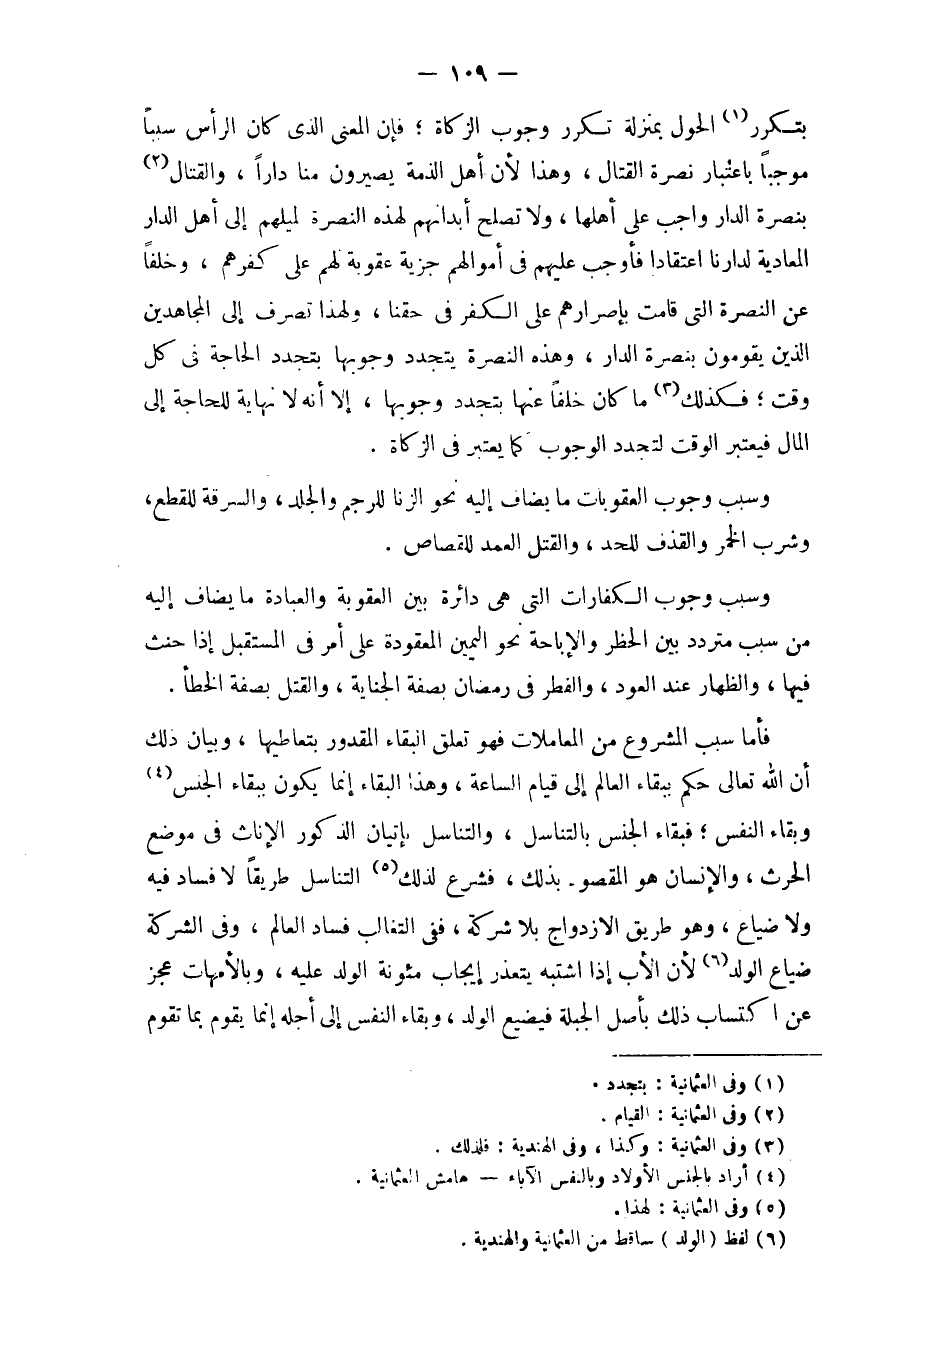 — ١٠٩ —
بتكرر(١) الحول بمنزلة تكرر وجوب الزكاة ؛ فإن المعنى الذى كان الرأس سبباً
موجباً باعتبار نصرة القتال ، وهذا لأن أهل الذمة يصيرون منا داراً ، والقتال(٢)
بنصرة الدار واجب على أهلها ، ولا تصلح أبدانهم لهذه النصرة لميلهم إلى أهل الدار
المعادية لدارنا اعتقادا فأوجب عليهم فى أموالهم جزية عقوبة لهم على كفرهم ، وخلفاً
عن النصرة التى قامت بإصرارهم على الكفر فى حقنا ، ولهذا تصرف إلى المجاهدين
الذين يقومون بنصرة الدار ، وهذه النصرة يتجدد وجوبها بتجدد الحاجة فى كل
وقت ؛ فكذلك(٣) ما كان خلفاً عنها بتجدد وجوبها ، إلا أنه لا نهاية للحاجة إلى
المال فيعتبر الوقت لتجدد الوجوب كما يعتبر فى الزكاة .
وسبب وجوب العقوبات ما يضاف إليه نحو الزنا للرجم والجلد ، والسرقة للقطع،
وشرب الخمر والقذف للحد ، والقتل العمد للقصاص .
وسبب وجوب الكفارات التى هى دائرة بين العقوبة والعبادة ما يضاف إليه
من سبب متردد بين الحظر والإباحة نحو اليمين المعقودة على أمر فى المستقبل إذا حنث
فيها ، والظهار عند العود ، والفطر فى رمضان بصفة الجناية ، والقتل بصفة الخطأ .
فأما سبب المشروع من المعاملات فهو تعلق البقاء المقدور بتعاطيها ، وبيان ذلك
أن الله تعالى حكم ببقاء العالم إلى قيام الساعة ، وهذا البقاء إنما يكون ببقاء الجنس(٤)
وبقاء النفس ؛ فبقاء الجنس بالتناسل ، والتناسل بإتيان الذكور الإناث فى موضع
الحرث ، والإنسان هو المقصو. بذلك ، فشرع لذلك(٥) التناسل طريقاً لا فساد فيه
ولا ضياع ، وهو طريق الازدواج بلا شركة ، ففى التغالب فساد العالم ، وفى الشركة
ضياع الولد(٦) لأن الأب إذا اشتبه يتعذر إيجاب مئونة الولد عليه ، وبالأمهات عجز
عن اكتساب ذلك بأصل الجبلة فيضيع الولد ، وبقاء النفس إلى أجله إنما يقوم بما تقوم
(١) وفى العثمانية : بتجدد .
(٢) وفى العثمانية : القيام .
(٣) وفى العثمانية : وكذا ، وفى الهندية : فلذلك .
(٤) أراد بالجنس الأولاد وبالنفس الآباء — هامش العثمانية .
(٥) وفى العثمانية : لهذا .
(٦) لفظ ( الولد ) ساقط من العثمانية والهندية .